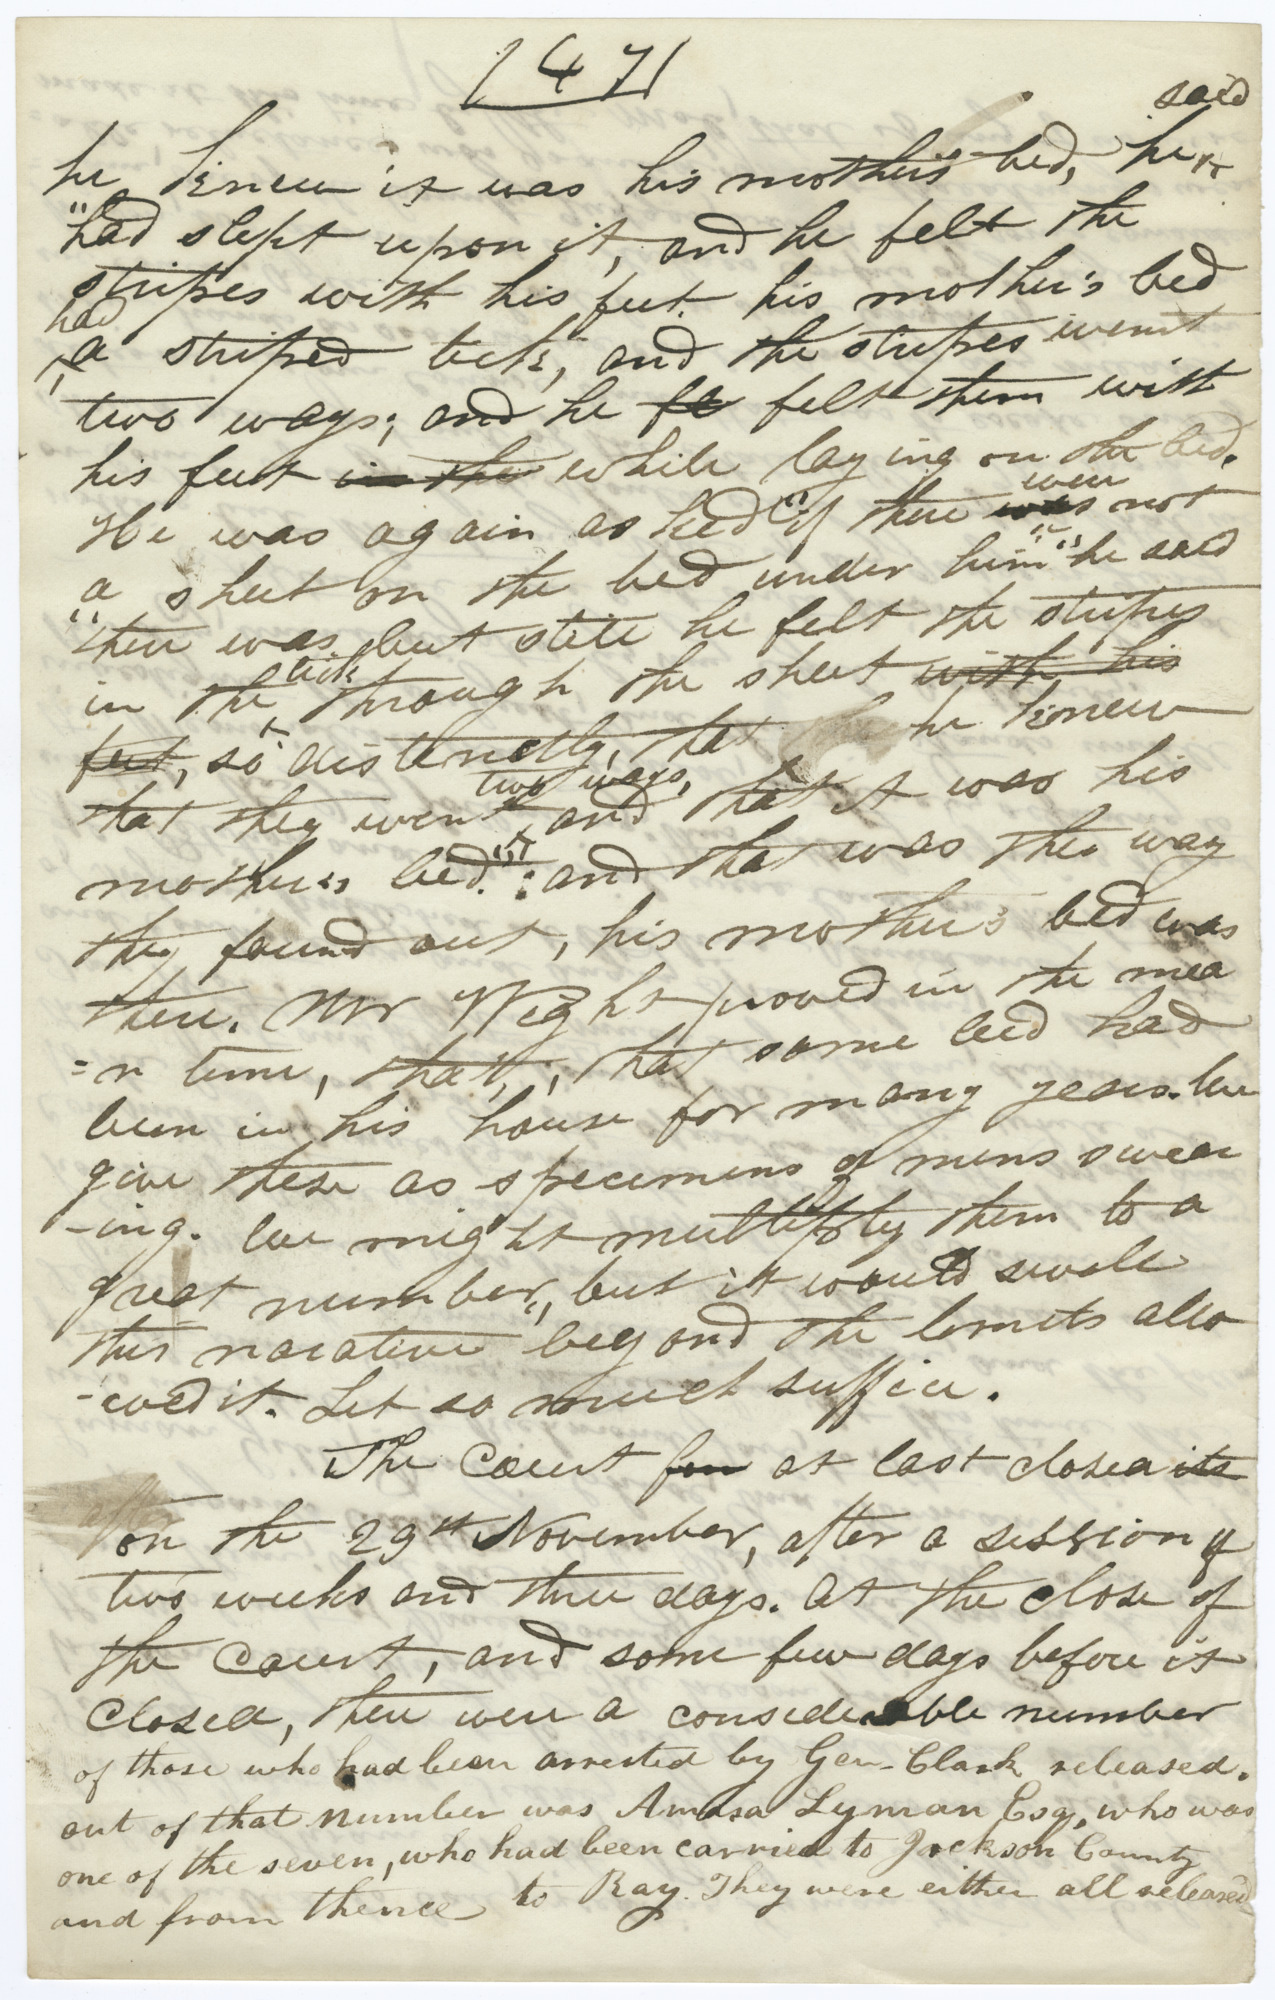 /47/
said
he knew it was his mother's bed, he
"had slept upon it, and he felt the
stripes with his feet. his mother's bed
had
a striped tick, and the stripes went
two ways; and he fe felt them with
his feet in the while laying on the bed.
were
He was again asked "if there was not
a sheet on the bed under him" he said
"there was, but still he felt the stripes
tick
in the through the sheet with his
feet, so distinctly, that he knew
two ways,
that they went and that it was his
mother's bed.": and that was the way
they found out, his mother's bed was
there. Mr Wight proved in the mea
=n time, that, , that same bed had
been in his house for many years. we
give these as specimens of mens swear
-ing. we might multiply them to a
great number, but it would swell
this narative beyond the limits allo
-wed it. Let so much suffice.
The Court fou at last closed its
after
on the 29th November, after a session of
two weeks and three days. at the close of
the Court, and some few days before it
closed, there were a considerable number
of those who had been arrested by Gen. Clark released.
out of that number was Amasa Lyman Esq, who was
one of the seven, who had been carried to Jackson County
and from thence to Ray. They were either all released